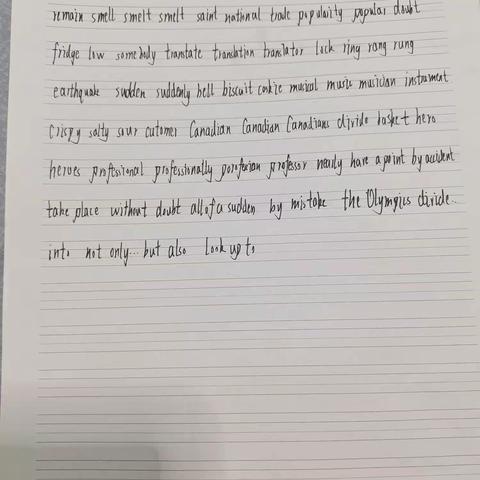 remain smell smelt smelt saint national trade popularity popular doubt
fridge low somebody translate translation translator lock ring rang rung
earthquake sudden suddenly bell biscuit cookie musical music musician instrument
crispy salty sour cutomer Canadian Canadian Canadians divide basket hero
heroes professional professionally professor nearly have a point by accident
take place without doubt all of a sudden by mistake the Olympics divide
into not only... but also Look up to